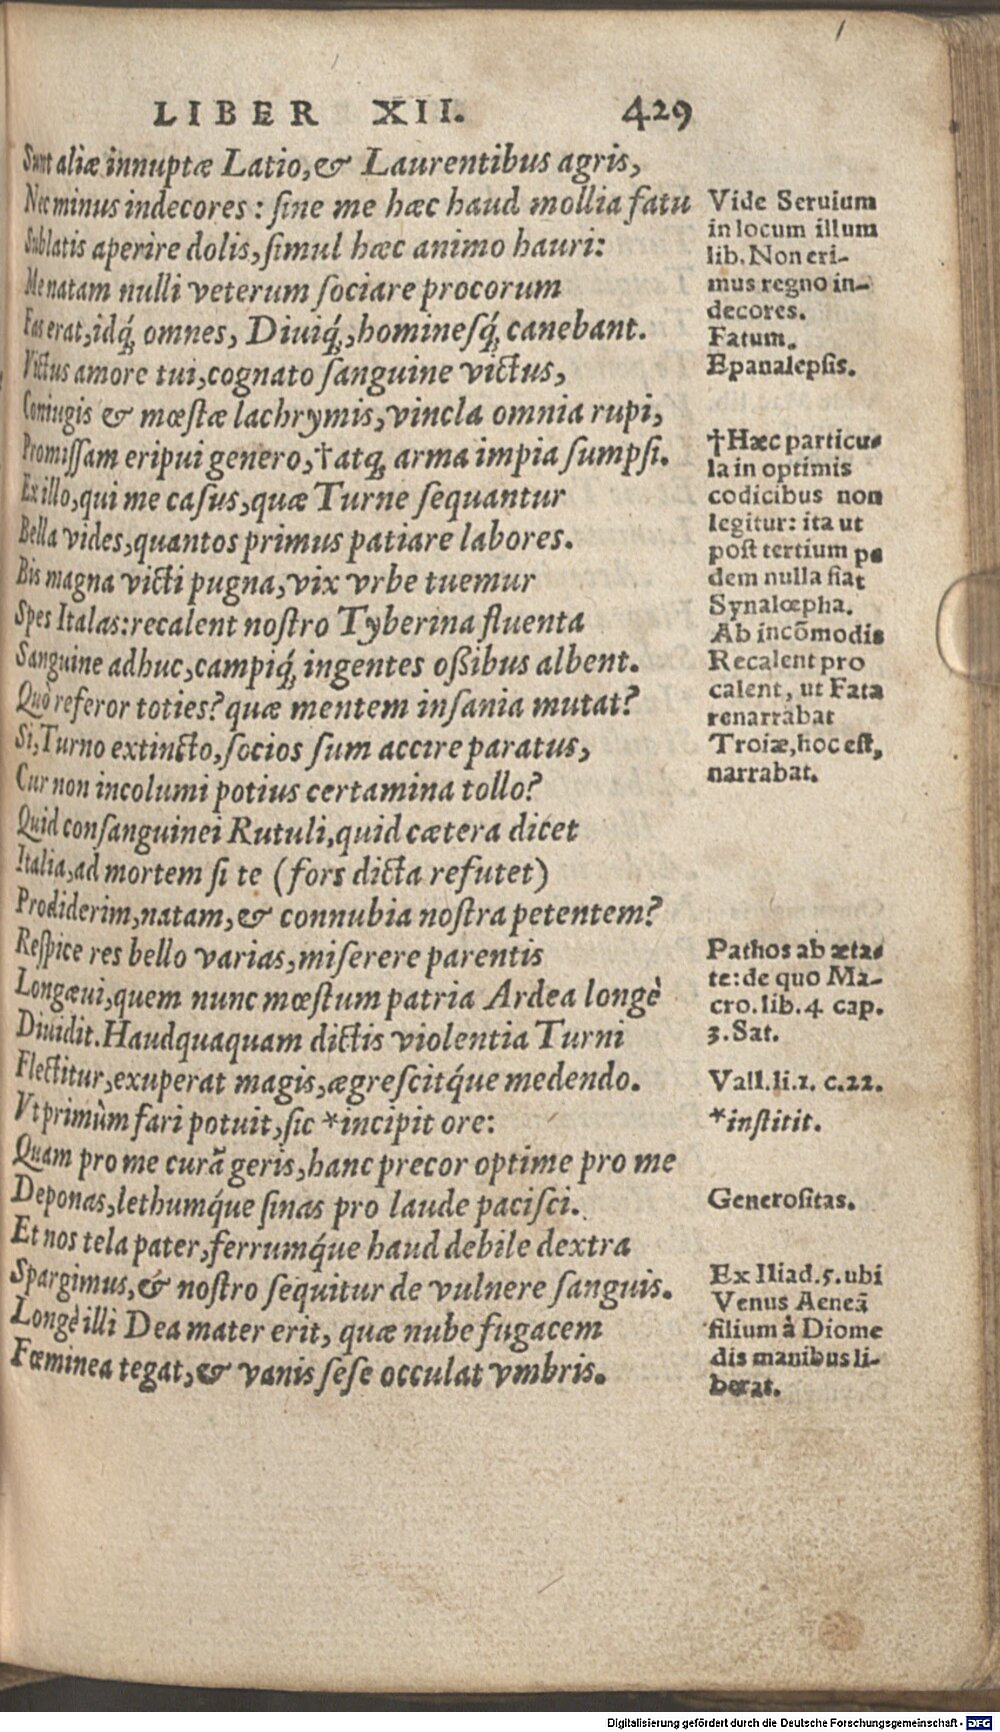 LIBER XII. 429
Sunt aliæ innuptæ Latio, & Laurentibus agris,
Nec minus indecores : sine me hæc haud mollia fatu
Sublatis aperire dolis, simul hæc animo hauri:
Me natam nulli veterum sociare procorum
Fas erat, idq́; omnes, Diuiq́;, hominesq́; canebant.
Victus amore tui, cognato sanguine victus,
Coniugis & mœstæ lachrymis, vincla omnia rupi,
Promissam eripui genero, †atq; arma impia sumpsi.
Ex illo, qui me casus, quæ Turne sequantur
Bella vides, quantos primus patiare labores.
Bis magna victi pugna, vix vrbe tuemur
Spes Italas: recalent nostro Tyberina fluenta
Sanguine adhuc, campiq́; ingentes oßibus albent.
Quò referor toties? quæ mentem insania mutat?
Si, Turno extincto, socios sum accire paratus,
Cur non incolumi potius certamina tollo?
Quid consanguinei Rutuli, quid cætera dicet
Italia, ad mortem si te (fors dicta refutet)
Prodiderim, natam, & connubia nostra petentem?
Respice res bello varias, miserere parentis
Longæui, quem nunc mœstum patria Ardea longè
Diuidit. Haudquaquam dictis violentia Turni
Flectitur, exuperat magis, ægrescitq́ue medendo.
Vt primùm fari potuit, sic *incipit ore:
Quam pro me curã geris, hanc precor optime pro me
Deponas, lethumq́ue sinas pro laude pacisci.
Et nos tela pater, ferrumq́ue haud debile dextra
Spargimus, & nostro sequitur de vulnere sanguis.
Longè illi Dea mater erit, quæ nube fugacem
Fœminea tegat, & vanis sese occulat vmbris.
Vide Seruium
in locum illum
lib. Non eri-
mus regno in-
decores.
Fatum.
Epanalepsis.
†Hæc particu-
la in optimis
codicibus non
legitur: ita ut
post tertium pe
dem nulla fiat
Synalœpha.
Ab incõmodis
Recalent pro
calent, ut Fata
renarrabat
Troiæ, hoc est,
narrabat.
Pathos ab æta-
te: de quo Ma-
cro. lib. 4. cap.
3. Sat.
Vall. li. 1. c. 22.
*institit.
Generositas.
Ex Iliad. 5. ubi
Venus Aeneã
filium à Diome
dis manibus li-
berat.
Digitalisierung gefördert durch die Deutsche Forschungsgemeinschaft - DFG